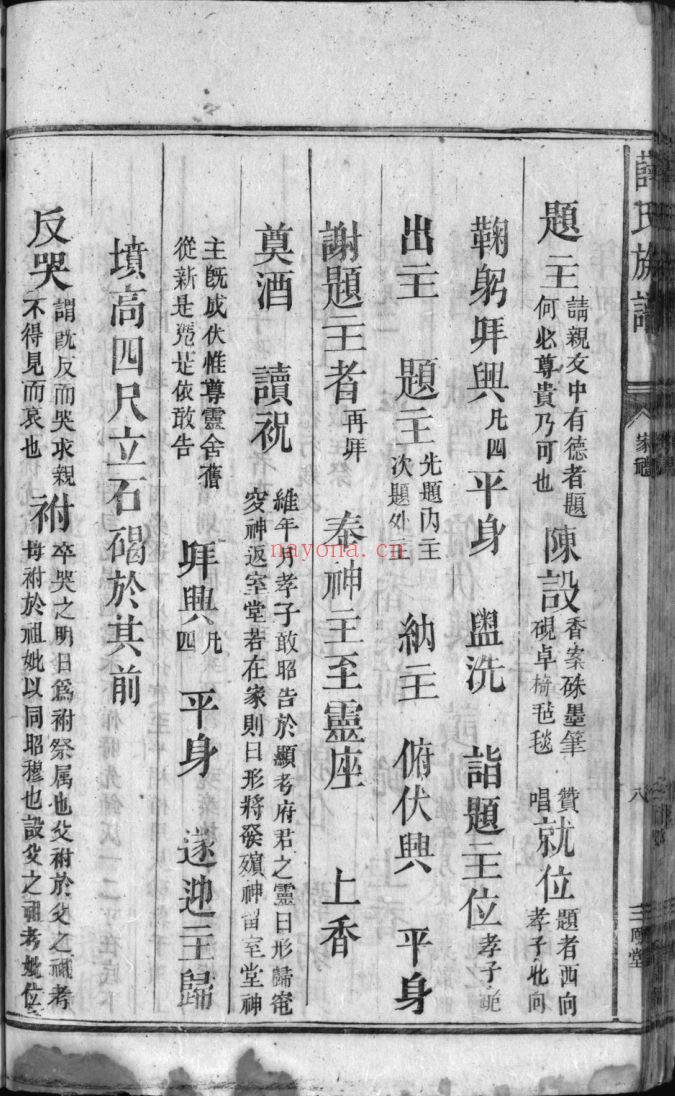 薛氏族譜 家禮 八 三鳳堂
題主 請親友中有德者題何必尊貴乃可也 陳設 香案硃墨筆硯卓椅毡毯 贊唱 就位 題者西向孝子北向
鞠躬拜興 凡四 平身 盥洗 詣題主位 孝子跪
出主 題主 先題內主次題外主 納主 俯伏興 平身
謝題主者 再拜 奉神主至靈座 上香
奠酒 讀祝 維年月孝子敢昭告於顯考府君之靈曰形歸窀穸神返室堂若在家則曰形將發殯神留室堂神
主既成伏惟尊靈舍舊從新是憑是依敢告 拜興 凡四 平身 遂迎主歸
墳高四尺立石碣於其前
反哭 謂既反而哭求親不得見而哀也 祔 卒哭之明日為祔祭属也父祔於父之祖考母祔於祖妣以同昭穆也設父之祖考妣位
nayona.cn